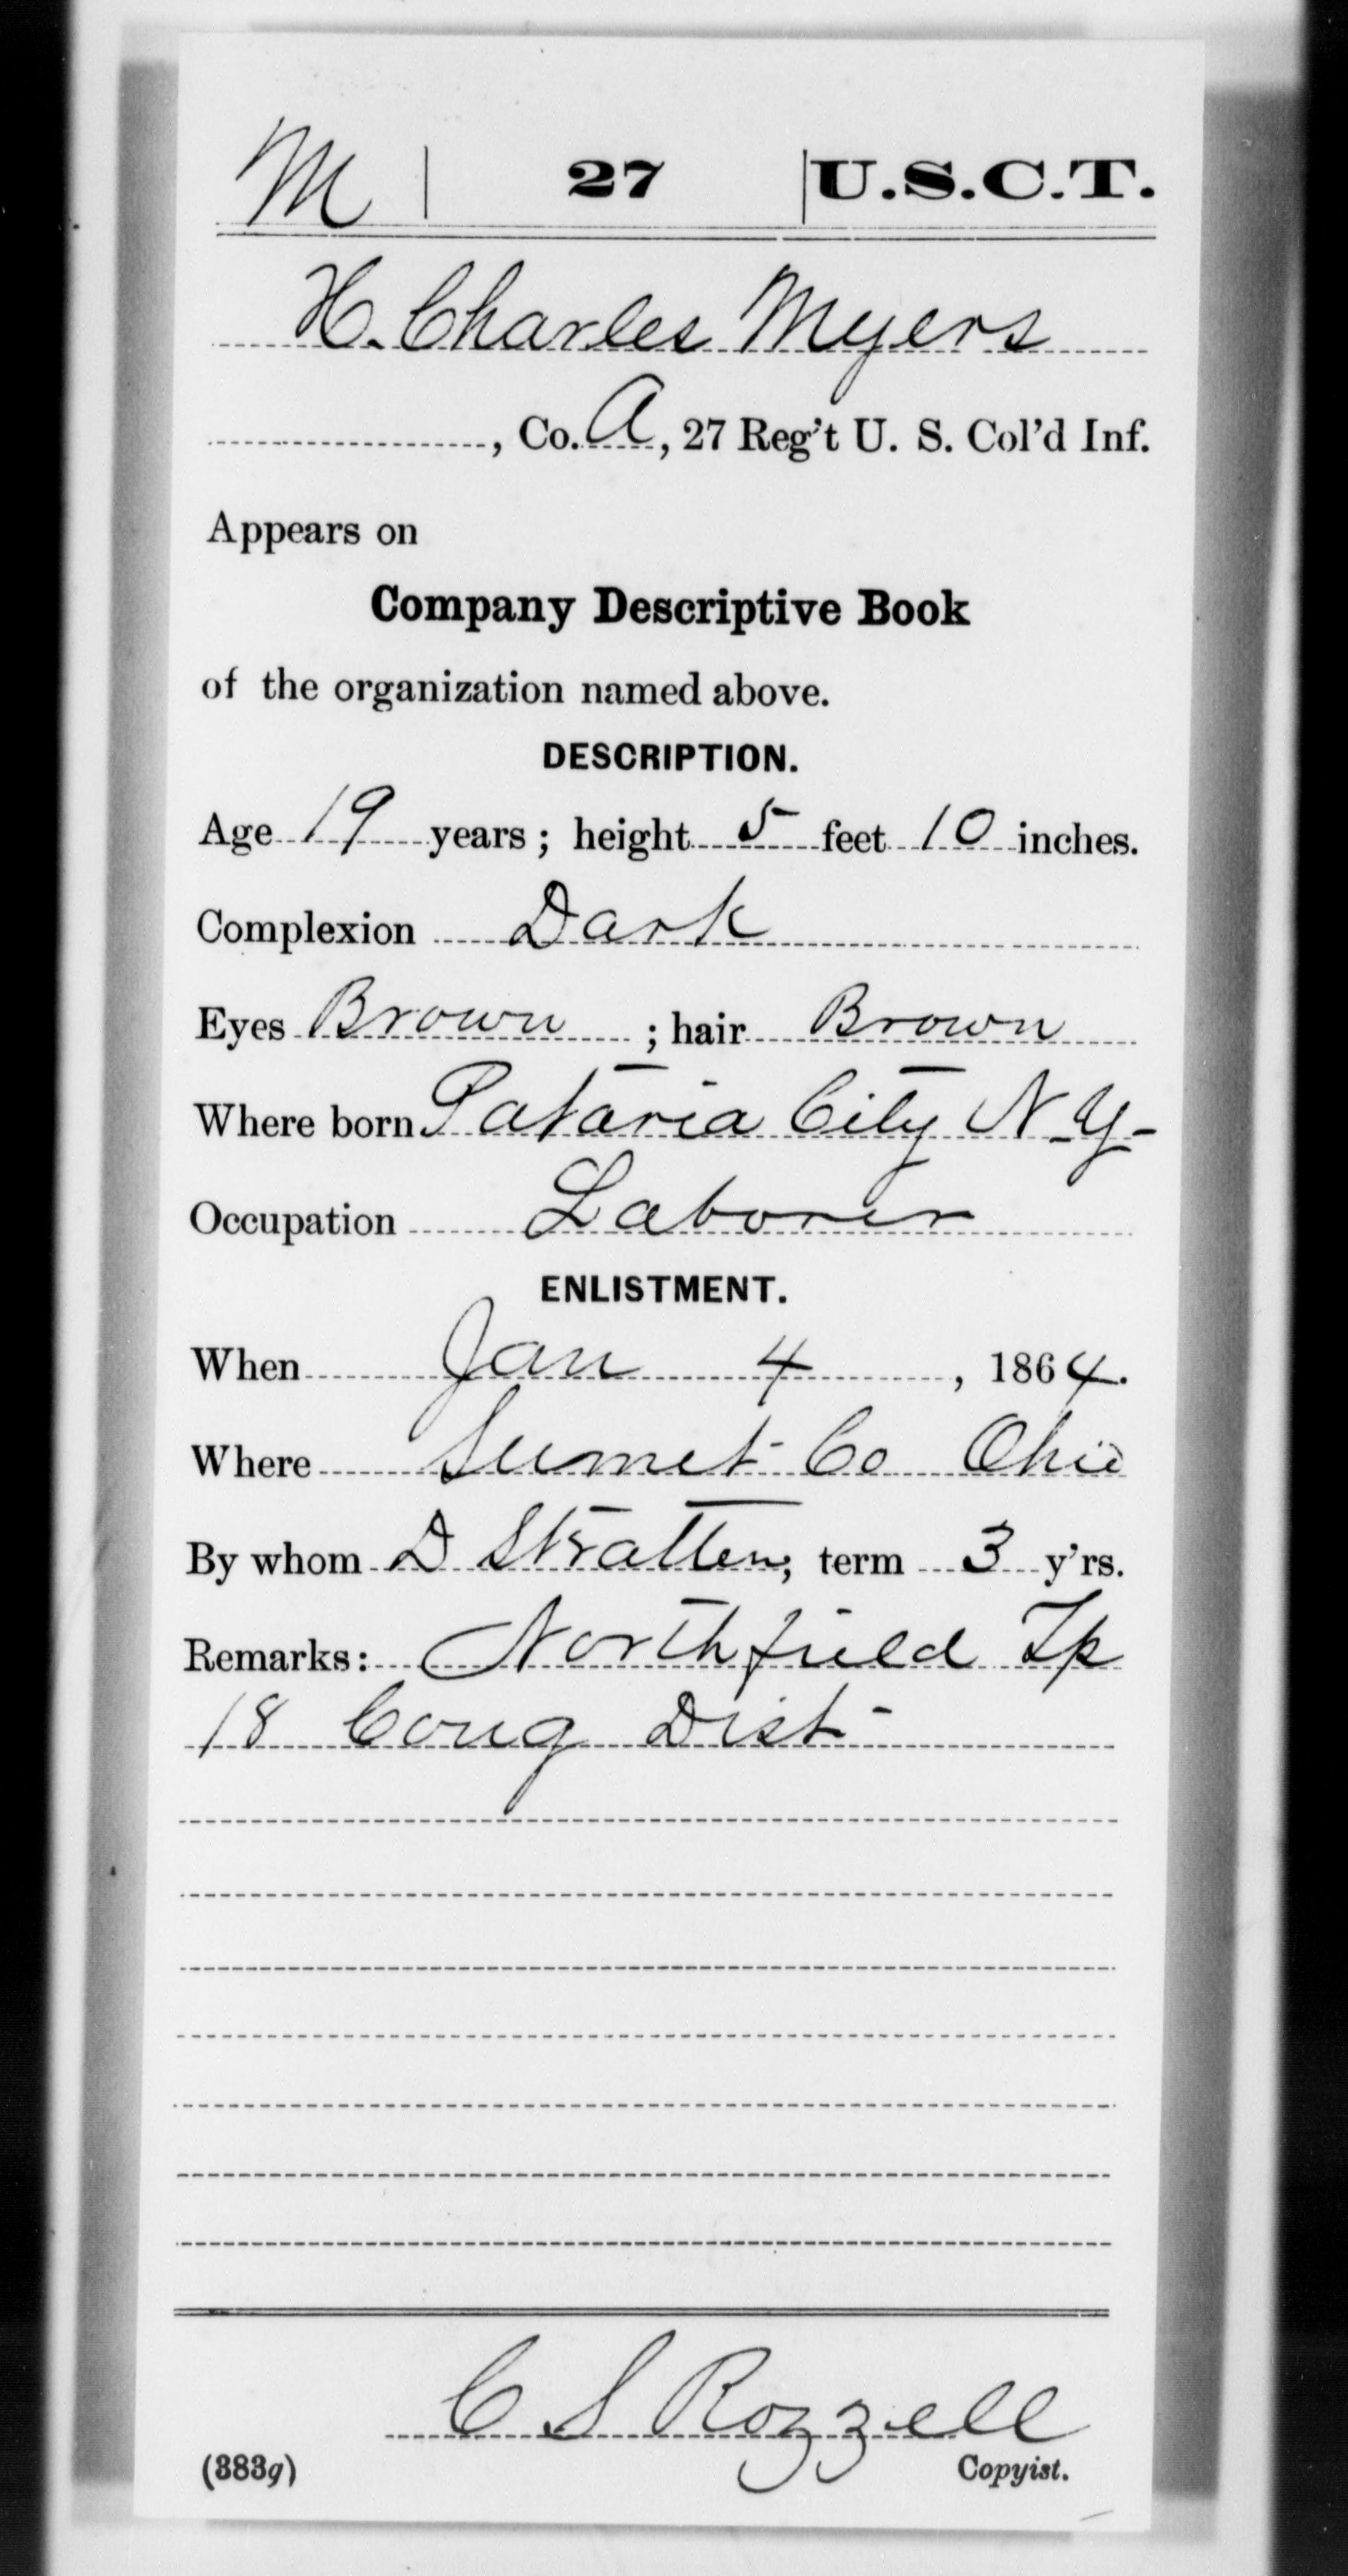 M | 27 | U.S.C.T.
H. Charles Myers
, Co. A, 27 Reg't U. S. Col'd Inf.
Appears on
Company Descriptive Book
of the organization named above.
DESCRIPTION.
Age 19 years; height 5 feet 10 inches.
Complexion Dark
Eyes Brown; hair Brown
Where born Pataria City N.Y-
Occupation Laborer
ENLISTMENT.
When Jan 4, 1864.
Where Sumet Co Ohio
By whom D Stratten; term 3 y'rs.
Remarks: Northfield Tp
18 Cong Dist-
C S Rozzell
(383g) Copyist.